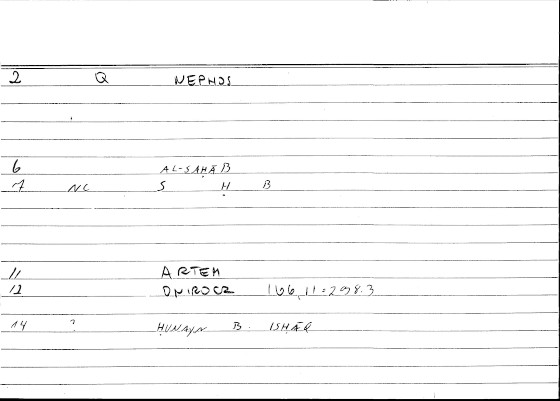 2 Q NEPHOS
6 AL-SAḤĀB
7 NC S Ḥ B
11 ARTEM
12 ONIROCR 166,11=298.3
14 ? ḤUNAYN B. ISḤĀQ